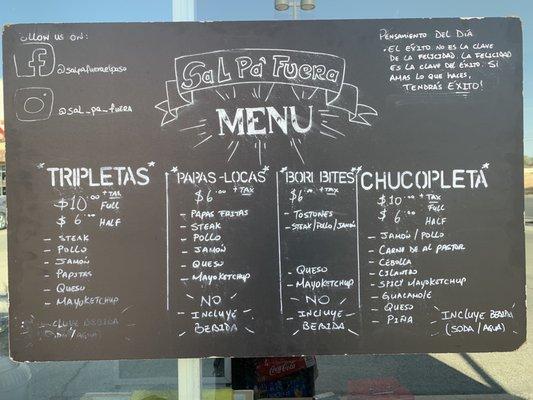 Follow us on:
@salpafueraelpaso
@sal_pa_fuera
Sal Pa' Fuera
MENU
Pensamiento Del Día
• El éxito no es la clave
de la felicidad. La felicidad
es la clave del éxito. Si
amas lo que haces,
tendrás éxito!
*TRIPLETAS*
$10.00 + TAX Full
$6.00 Half
- Steak
- Pollo
- Jamón
- Papitas
- Queso
- Mayoketchup
Incluye Bebida
Soda/Agua
*PAPAS-LOCAS*
$6.00 + TAX
- Papas Fritas
- Steak
- Pollo
- Jamón
- Queso
- Mayoketchup
NO
Incluye
Bebida
*BORI BITES*
$6.00 + TAX
- Tostones
- Steak/Pollo/Jamón
- Queso
- Mayoketchup
NO
Incluye
Bebida
CHUCOPLETA*
$10.00 + TAX Full
$6.00 Half
- Jamón/Pollo
- Carne de al Pastor
- Cebolla
- Cilantro
- Spicy Mayoketchup
- Guacamole
- Queso
- Piña
Incluye Bebida
(Soda/Agua)
Coca-Cola